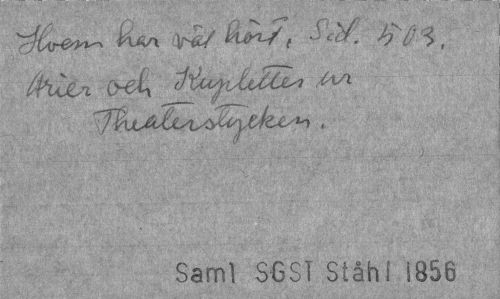 Hvem har väl hört, Sid. 503.
Arier och Kupletter ur
Theaterstycken.
Saml SGST Ståhl 1856